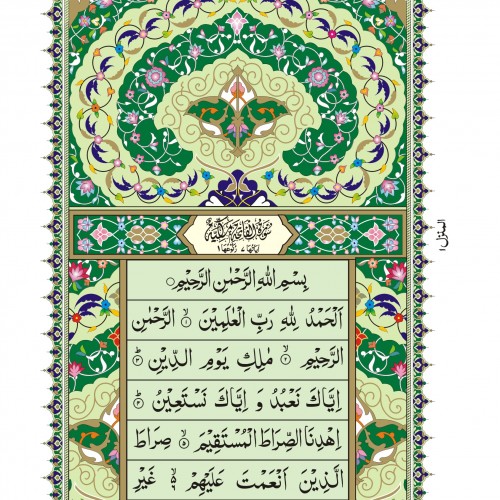 سُوْرَةُ الْفَاتِحَةِ مَكِّيَّةٌ
اٰيَاتُهَا ٧ رُكُوْعُهَا ١
بِسْمِ اللّٰهِ الرَّحْمٰنِ الرَّحِيْمِ
اَلْحَمْدُ لِلّٰهِ رَبِّ الْعٰلَمِيْنَ ۙ‏﴿۱﴾ الرَّحْمٰنِ
الرَّحِيْمِ ۙ‏﴿۲﴾ مٰلِكِ يَوْمِ الدِّيْنِ ؕ‏﴿۳﴾
اِيَّاكَ نَعْبُدُ وَ اِيَّاكَ نَسْتَعِيْنُ ؕ‏﴿۴﴾
اِهْدِنَا الصِّرَاطَ الْمُسْتَقِيْمَ ۙ‏﴿۵﴾ صِرَاطَ
الَّذِيْنَ اَنْعَمْتَ عَلَيْهِمْ ۙ‏﴿۶﴾ غَيْرِ
المنزل ١